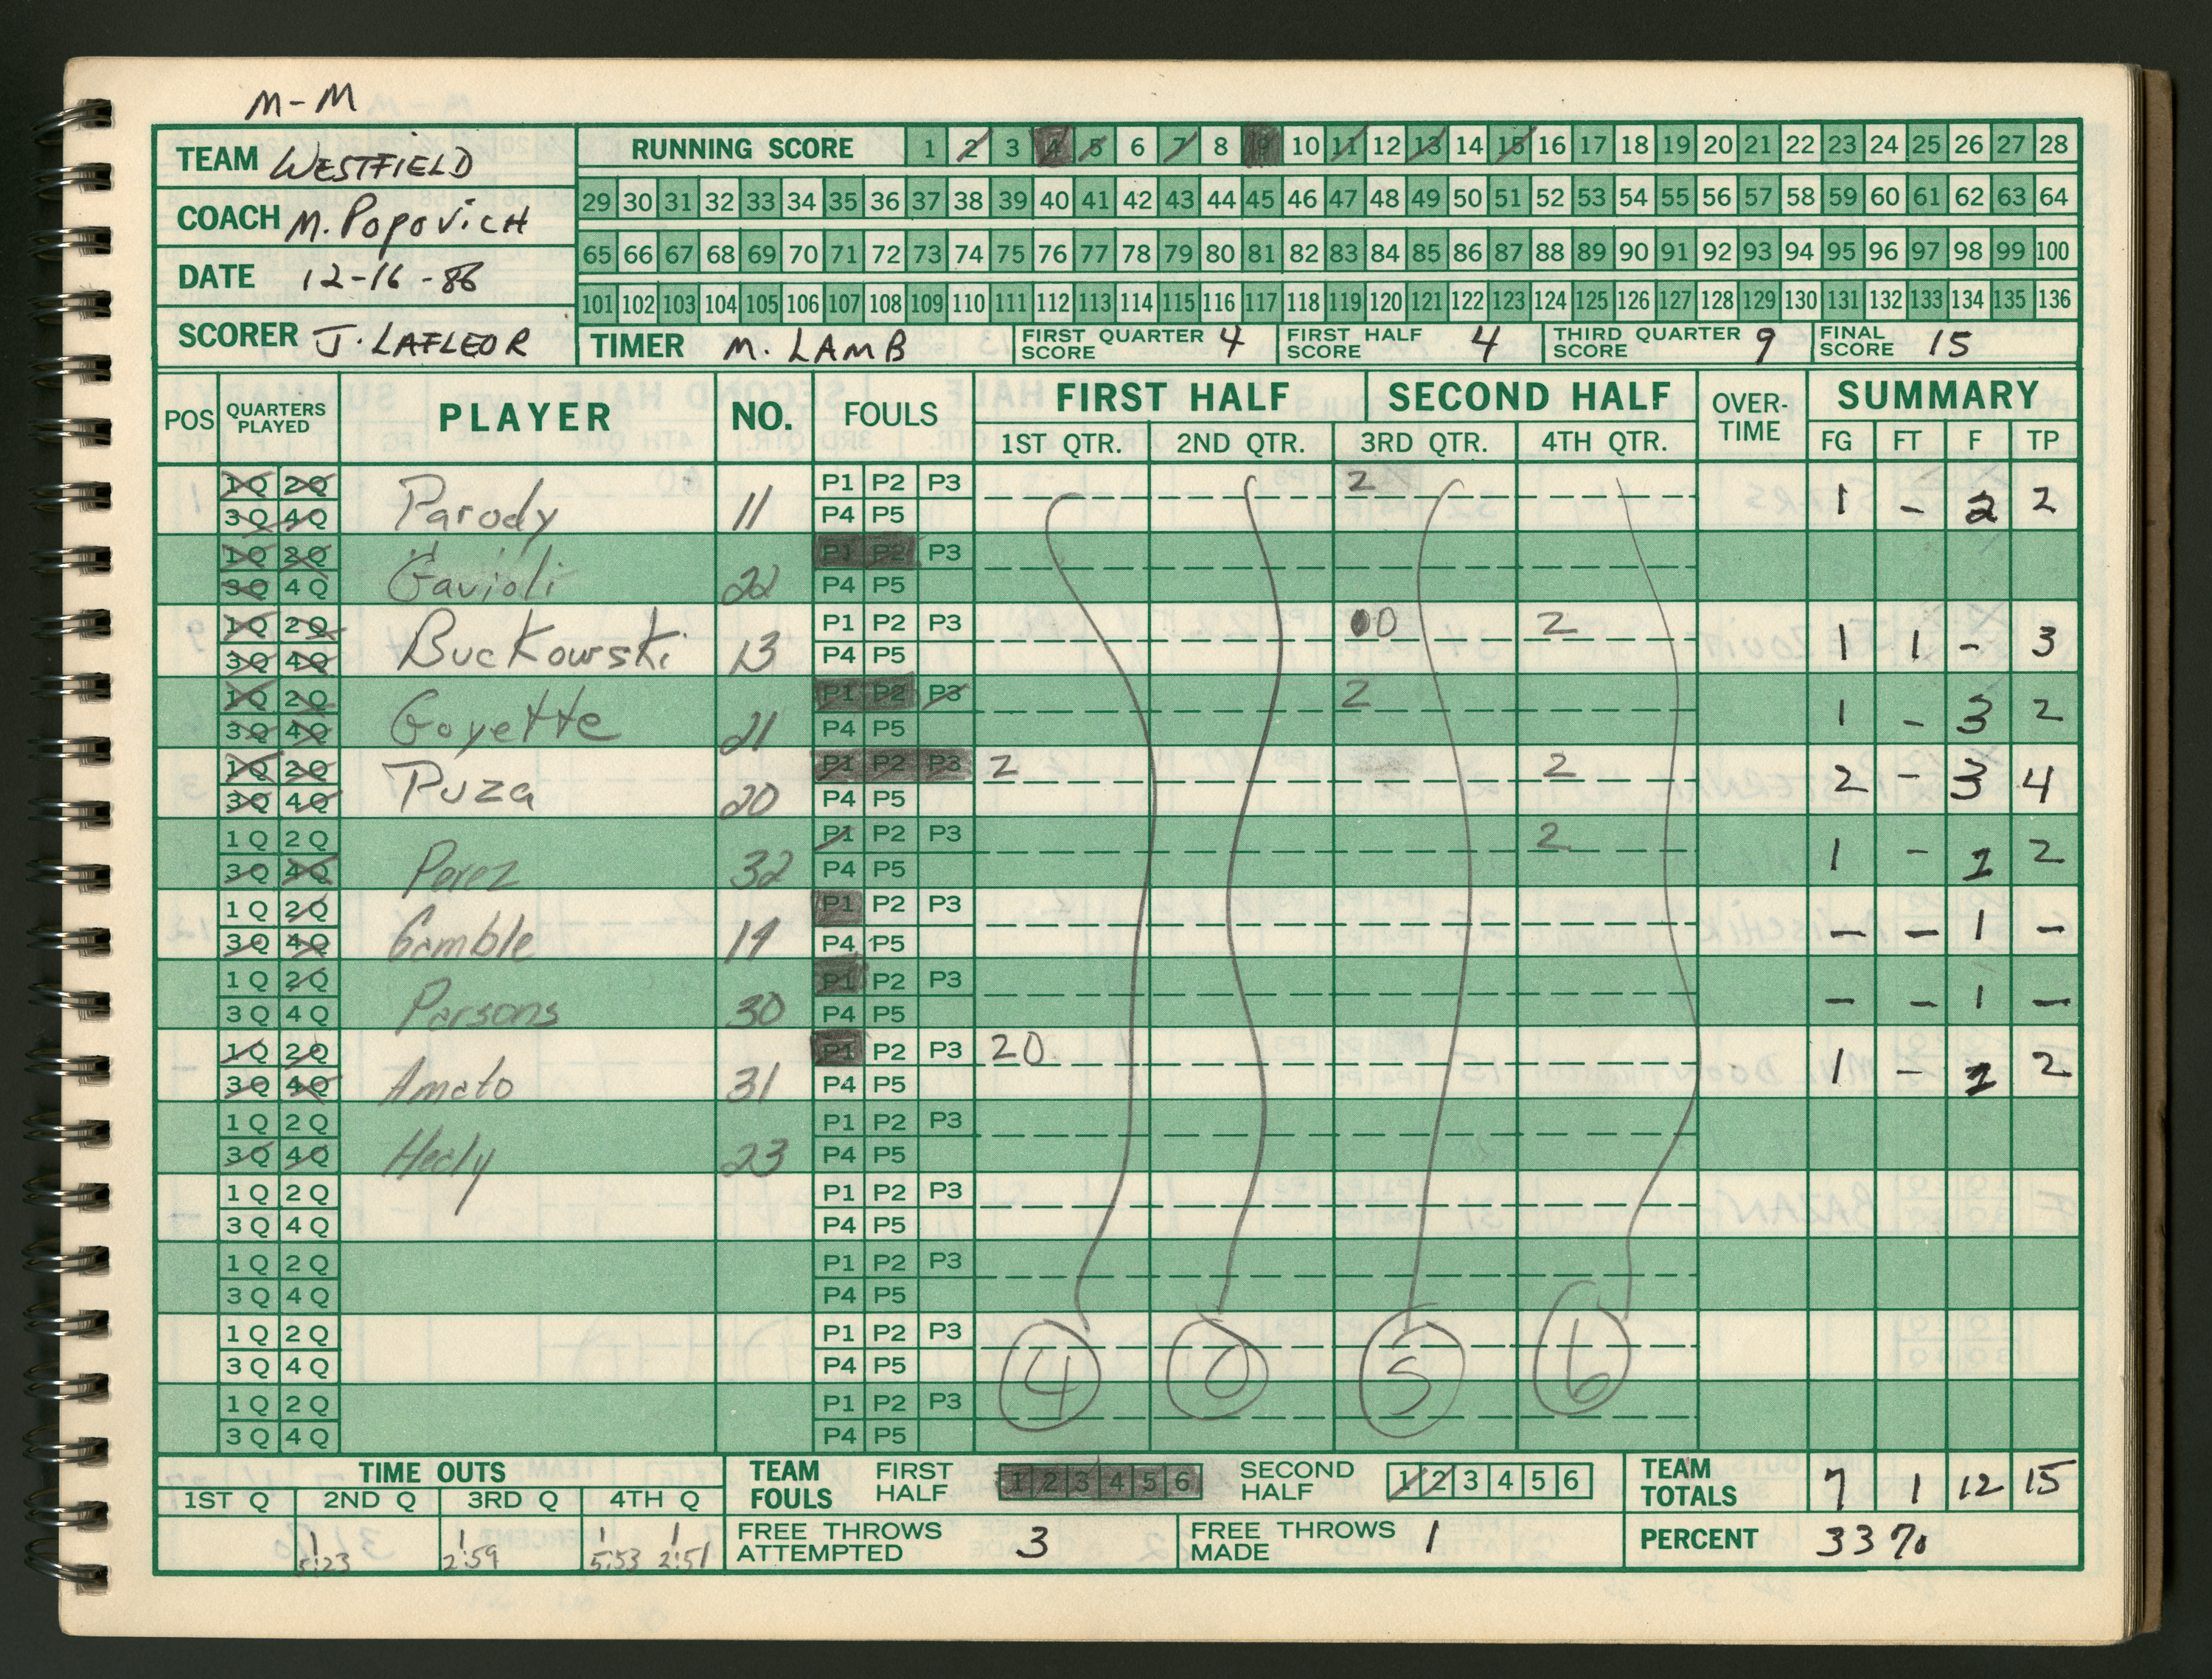 M-M
TEAM WESTFIELD
COACH M. POPOVICH
DATE 12-16-86
SCORER J. LAFLEOR
RUNNING SCORE 1 2 3 4 5 6 7 8 9 10 11 12 13 14 15 16 17 18 19 20 21 22 23 24 25 26 27 28
29 30 31 32 33 34 35 36 37 38 39 40 41 42 43 44 45 46 47 48 49 50 51 52 53 54 55 56 57 58 59 60 61 62 63 64
65 66 67 68 69 70 71 72 73 74 75 76 77 78 79 80 81 82 83 84 85 86 87 88 89 90 91 92 93 94 95 96 97 98 99 100
101 102 103 104 105 106 107 108 109 110 111 112 113 114 115 116 117 118 119 120 121 122 123 124 125 126 127 128 129 130 131 132 133 134 135 136
TIMER M. LAMB FIRST QUARTER SCORE 4 FIRST HALF SCORE 4 THIRD QUARTER SCORE 9 FINAL SCORE 15
POS QUARTERS PLAYED PLAYER NO. FOULS FIRST HALF SECOND HALF OVER-TIME SUMMARY
1ST QTR. 2ND QTR. 3RD QTR. 4TH QTR. FG FT F TP
1Q 2Q P1 P2 P3 2
3Q 4Q Parody 11 P4 P5 1 - 2 2
1Q 2Q P1 P2 P3
3Q 4Q Gavioli 22 P4 P5
1Q 2Q P1 P2 P3 00 2
3Q 4Q Buckowski 13 P4 P5 1 1 - 3
1Q 2Q P1 P2 P3 2
3Q 4Q Goyette 21 P4 P5 1 - 3 2
1Q 2Q P1 P2 P3 2 2
3Q 4Q Puza 20 P4 P5 2 - 3 4
1Q 2Q P1 P2 P3 2
3Q 4Q Perez 32 P4 P5 1 - 1 2
1Q 2Q P1 P2 P3
3Q 4Q Gamble 14 P4 P5 - - 1 -
1Q 2Q P1 P2 P3
3Q 4Q Parsons 30 P4 P5 - - 1 -
1Q 2Q P1 P2 P3 20
3Q 4Q Amato 31 P4 P5 1 - 1 2
1Q 2Q P1 P2 P3
3Q 4Q Healy 23 P4 P5
1Q 2Q P1 P2 P3
3Q 4Q P4 P5
1Q 2Q P1 P2 P3
3Q 4Q P4 P5
1Q 2Q P1 P2 P3
3Q 4Q P4 P5 4 0 5 6
1Q 2Q P1 P2 P3
3Q 4Q P4 P5
TIME OUTS TEAM FOULS FIRST HALF 1 2 3 4 5 6 SECOND HALF 1 2 3 4 5 6 TEAM TOTALS 7 1 12 15
1ST Q 2ND Q 3RD Q 4TH Q
1 5:23 1 2:59 1 5:53 1 2:51 FREE THROWS ATTEMPTED 3 FREE THROWS MADE 1 PERCENT 33%